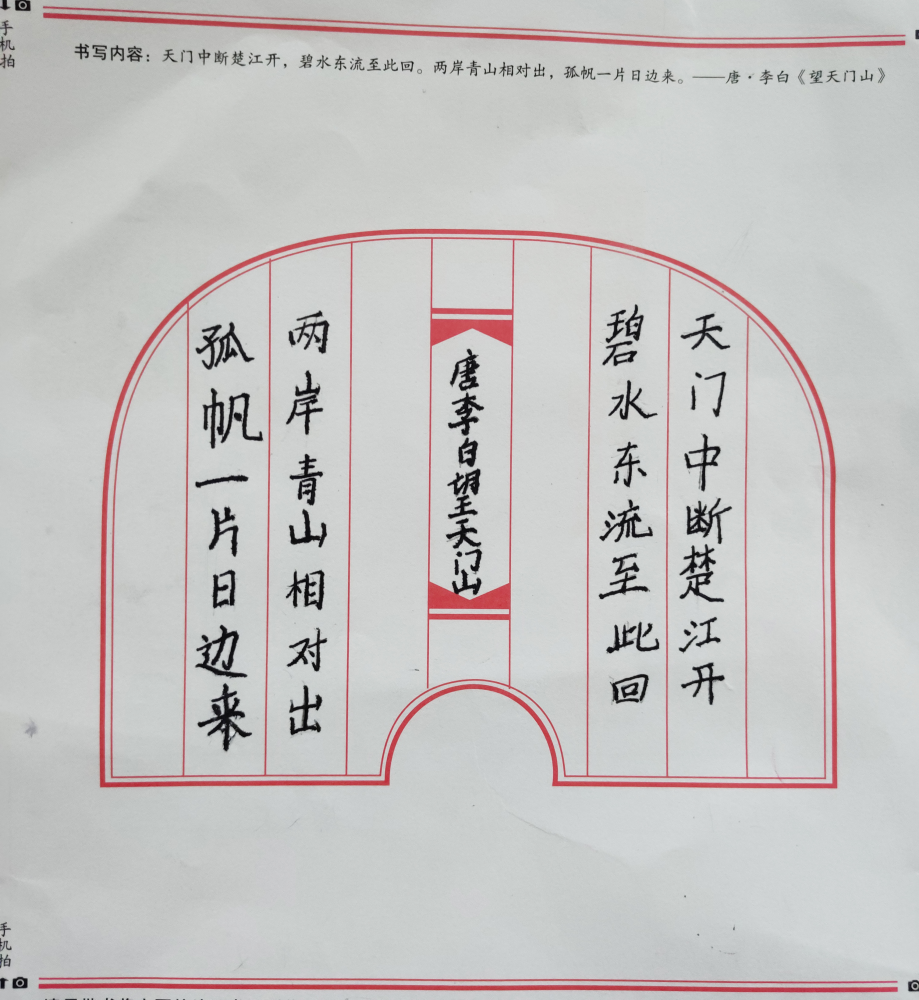 手机拍
书写内容：天门中断楚江开，碧水东流至此回。两岸青山相对出，孤帆一片日边来。——唐·李白《望天门山》
天门中断楚江开
碧水东流至此回
唐李白望天门山
两岸青山相对出
孤帆一片日边来
手机拍